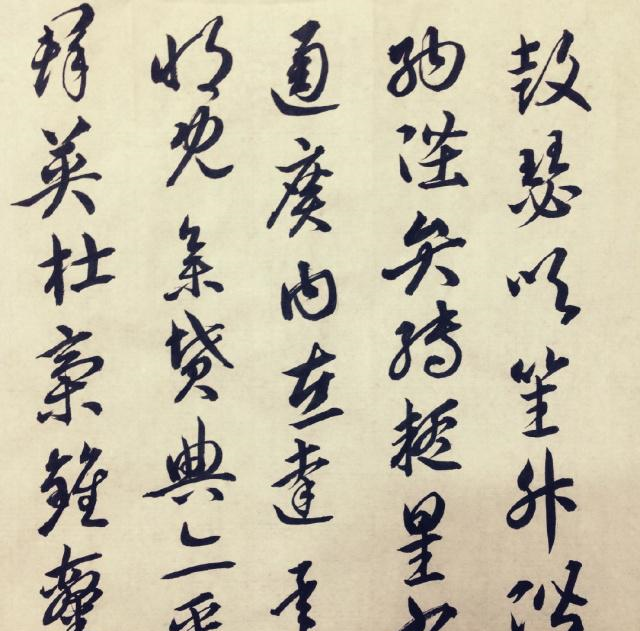 鼓瑟吹笙升階
納陛弁轉疑星右
通廣内左達承
明既集墳典亦聚
群英杜稾鍾隸